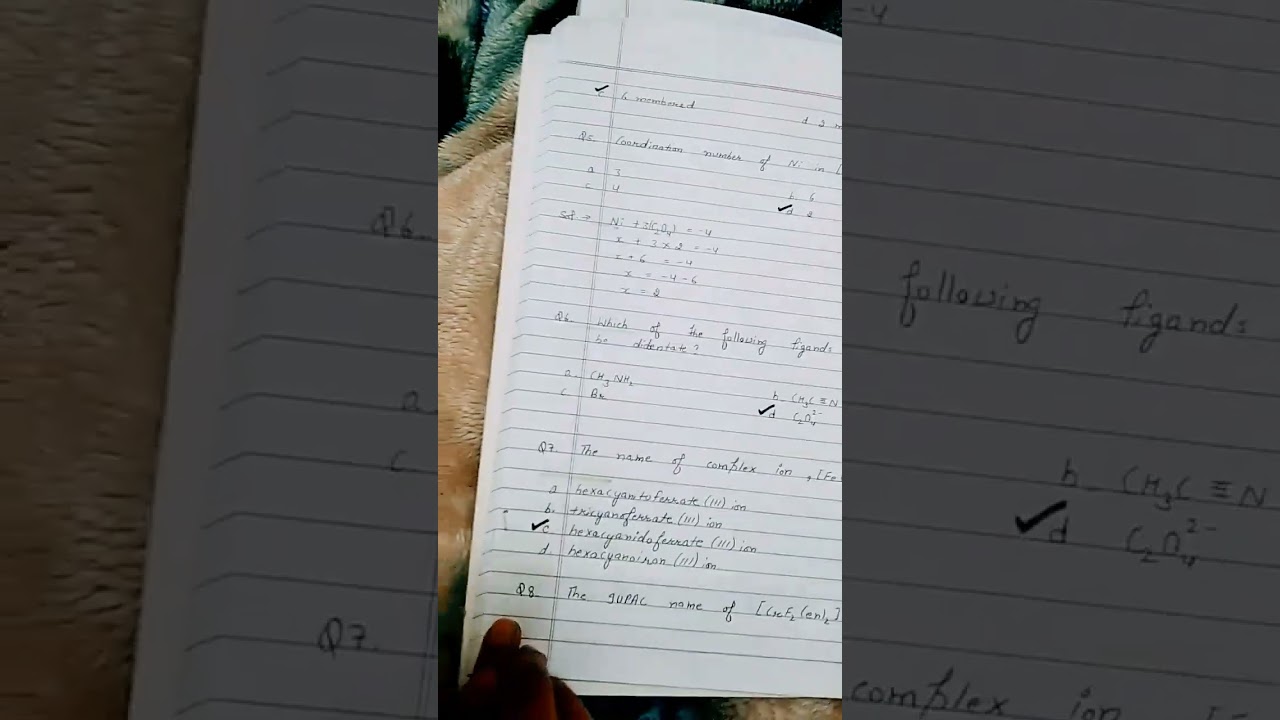 ✓c 6 membered
d 2 m
Q5. Coordination number of Ni in [
a 3
b 6
c 4
✓d 2
Sol → Ni + 3(C₂O₄) = -4
x + 3 × 2 = -4
x + 6 = -4
x = -4 - 6
x = 2
Q6. Which of the following ligands
be didentate?
a. CH₃NH₂
b CH₃C≡N
c Br
✓d C₂O₄²⁻
Q7. The name of complex ion, [Fe
a hexacyanitoferrate (III) ion
b. tricyanoferrate (III) ion
✓c. hexacyanidoferrate (III) ion
d. hexacyanoiron (III) ion
Q8. The IUPAC name of [CrF₂(en)₂]
-4
Q6.
a
c
Q7.
following ligands
b CH₃C≡N
✓d C₂O₄²⁻
complex ion